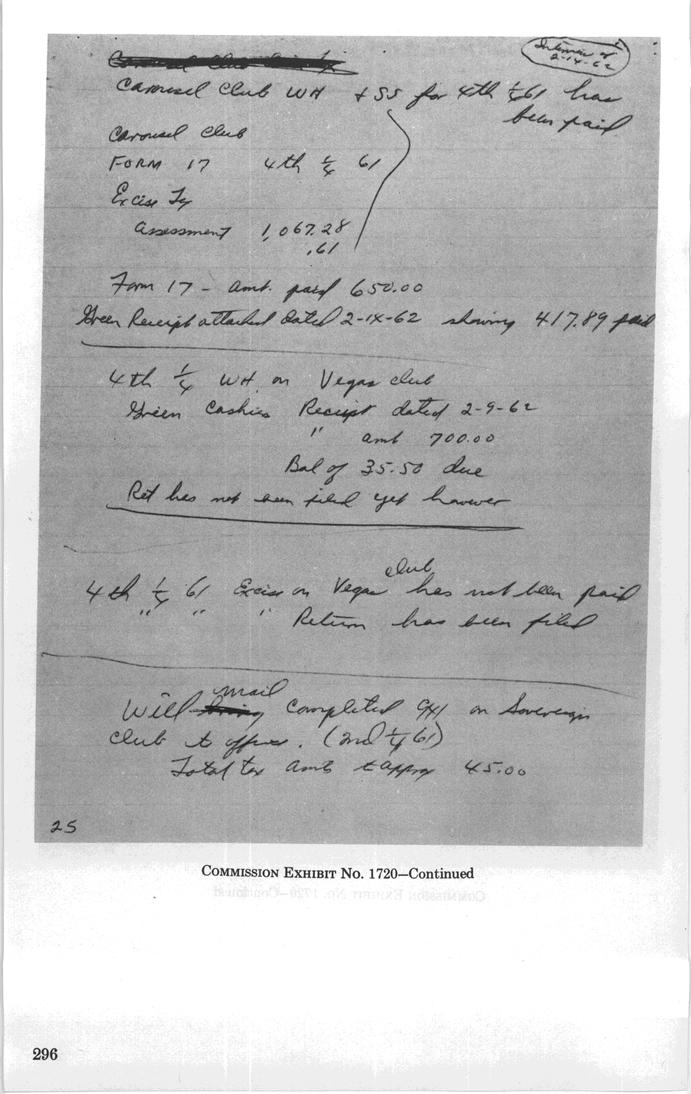 Interview of
2-14-62
Carousel Club WH + SS for 4th 1/4 61 has
been paid
Carousel Club
FORM 17 4th 1/4 61
Excise Tx
Assessment 1,067.28
.61
Form 17 - amt. paid 650.00
Green Receipt attached dated 2-14-62 showing 417.89 paid
4th 1/4 WH on Vegas club
Green Cashies Receipt dated 2-9-62
" amt 700.00
Bal of 35.50 due
Ret has not been filed yet however
4th 1/4 61 Excise on Vegas club has not been paid
" " " Return has been filed
Will mail completed 941 on Sovereign
club to office. (2nd 1/4 61)
Total tax amt to appx 45.00
25
COMMISSION EXHIBIT No. 1720—Continued
296